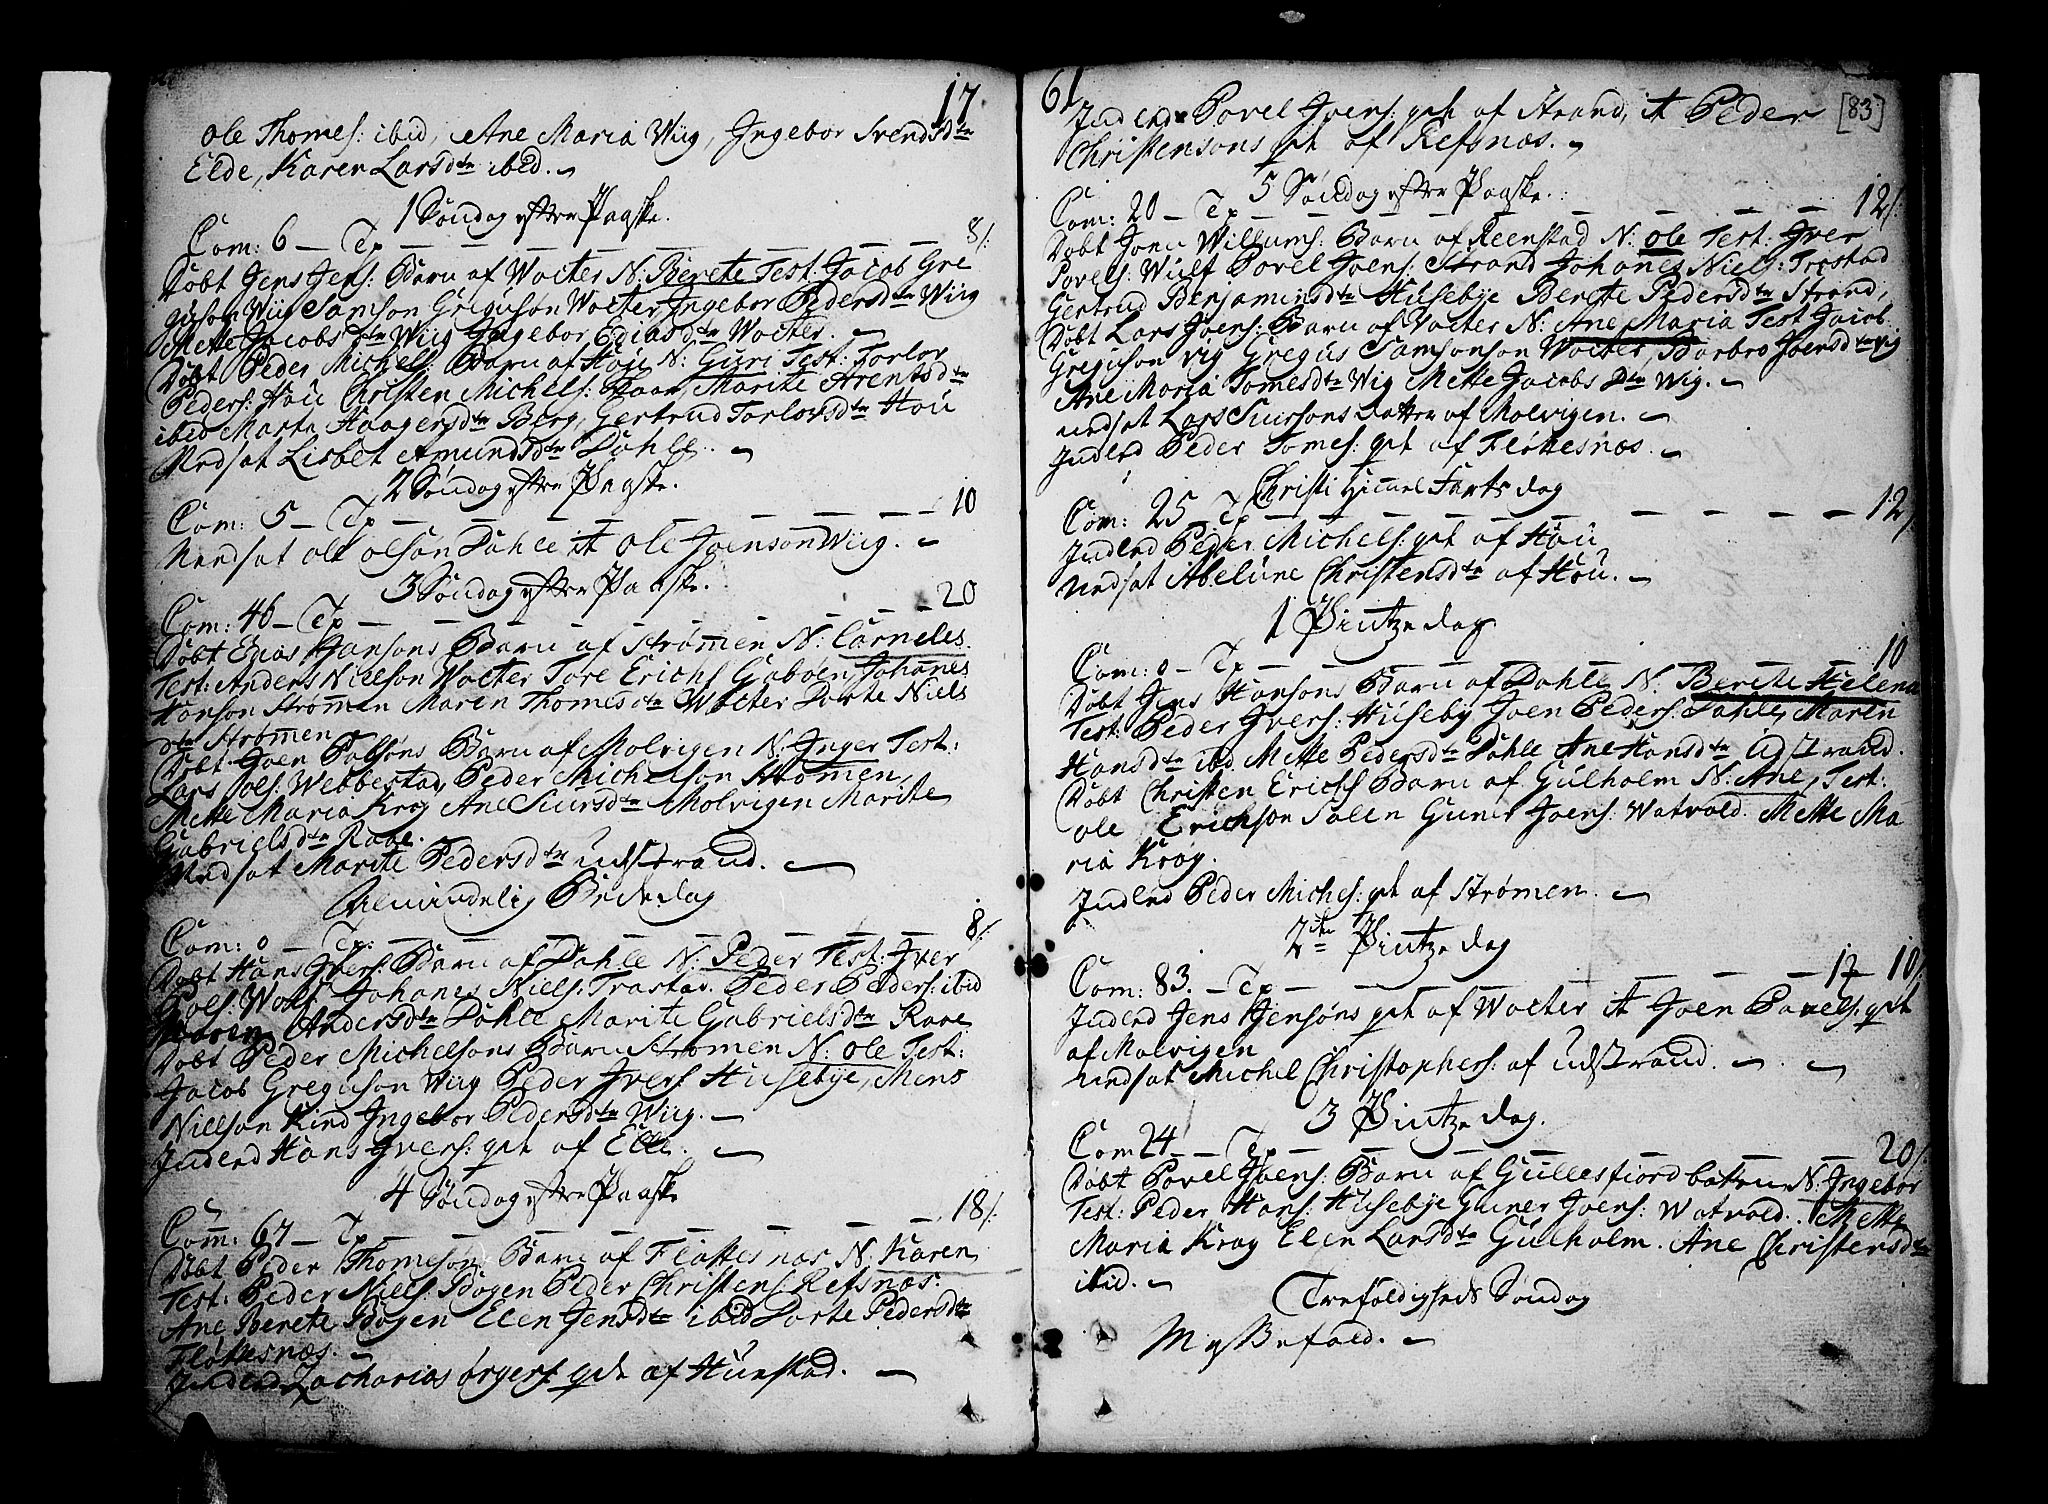 17.
Ole Thomes: ibid, Ane Maria Wiig, Ingebor Svendsdtr
Elde, Karen Larsdtr ibid.
1 Søndag efter Paaske.
Com: 6 – Tp – – – 8/:
Døbt Jens Jens: Barn af Wolter N: Berete Test: Jacob Gre
guson Wiig Samson Greguson Wolter Ingebor Pedersdtr Wiig
Mette Jacobsdtr Wiig Ingebor Ediasdtr Wolter.
Døbt Peder Michels: Barn af Høü N: Guri Test: Torlov
Peders: Høü Christen Michels: Marite Arentsdtr
ibid Marta Haagersdtr Berg, Gertrud Torlovsdtr Høü
Nedsat Lisbet Amundsdtr Dahle.
2 Søndag efter Paaske.
Com: 5 – Tp – – – 10
Nedsat Ole Olson Dahle it Ole Joenson Wiig.
3 Søndag efter Paaske.
Com: 46 – Tp – – – 20
Døbt Edias Hansons Barn af Strømen N: Carneles.
Test: Anders Nielson Wolter Tore Erichs Gabøen Johanes
Hanson Strømen Maren Thomesdtr Wolter Dorte Niels
dtr Strømen
Døbt Joen Polsøns Barn af Molvigen N: Inger Test:
Lars Joels: Webbestad Peder Michelson Strømen,
Mette Maria Krog Ane Siursdtr Molvigen Marite
Gabrielsdtr Raae.
Nedsat Marite Pedersdtr Udstrand.
Almindelig Bededag
Com: 0 – Tp: – – – 8/:
Døbt Hans Ivers: Barn af Dahle N: Peder Test: Iver
Poels: Wolf Johanes Niels: Trastad. Peder Peders: ibid
Maren Andersdtr Dahle Marite Gabrielsdtr Raae
Døbt Peder Michelsons Barn Strømen N: Ole Test:
Jacob Greguson Wiig Peder Ivers Husebye, Mens
Nielson Kind Ingebor Pedersdtr Wiig.
Indled Hans Ivers: qvt af Elde.
4 Søndag efter Paaske
Com: 67 – Tp – – – 18/:
Døbt Peder Thomeson: Barn af Flottesnæs N: Karen
Test: Peder Niels: Bogen Peder Christens: Refsnæs:
Ane Berete Bogen Elen Jensdtr ibid Dorte Pedersdtr
Fløttesnæs.
Indled Zacharias Ørgers qvt af Hunstad.
61
[83]
Indled Povel Joens: qvt af Strand, it Peder
Christensons qvt af Refsnæs.
5 Søndag efter Paaske.
Com: 20 – Tp – – – 12/:
Døbt Joen Willums: Barn af Reenstad N: Ole Test: Iver
Povels: Wulf Povel Joens: Strand Johanes Niels: Trostad
Gertrud Benjaminsdtr Husebye Berete Pedersdtr Strand,
Døbt Lars Joens: Barn af Volter N: Ane Maria Test Jacob
Greguson Vig Gregus Samsonson Wolter, Barbro Joensdtr Vig
Ane Maria Tomesdtr Wig Mette Jacobs Dtr Wig.
Nedsat Lars Siursons datter af Molvigen.
Indled Peder Tomes: qvt af Fløttesnæs.
Christi Himmel Farts dag
Com: 25 Tp – – – 12/
Indled Peder Michels: qvt af Høü
Nedsat Abelune Christensdtr af Høü.
1 Pintze dag.
Com: 0 – Tp – – – 10
Døbt Jens Hansons Barn af Dahle N: Berete Helena
Test: Peder Ivers: Huseby Joen Peders: Dahle, Maren
Hansdtr ibd. Mette Pedersdtr Dahle Ane Hansdtr Udstrand.
Døbt Christen Erichs Barn af Gulholm N: Ane, Test:
Ole Erichson Salen Guner Joens: Watvold. Mette Ma
ria Krog.
Indled Peder Michel: qvt af Strømen.
2den Pintze dag
Com: 83. – Tp – – – 17 – 10/:
Indled Jens Jensøns qvt af Wolter it Joen Povels: qvt
af Molvigen
Nedsat Michel Christophers: af Udstrand.
3 Pintze dag.
Com 24 – Tp – – – 20/
Døbt Povel Joens: Barn af Gullesfiordbotten N: Ingebor
Test: Peder Hans: Husebye Guner Joens: Watvold. Mette
Maria Krog Elen Larsdtr Gulholm. Ane Christensdtr
ibid.
Trefoldigheds Søndag
Messefald.